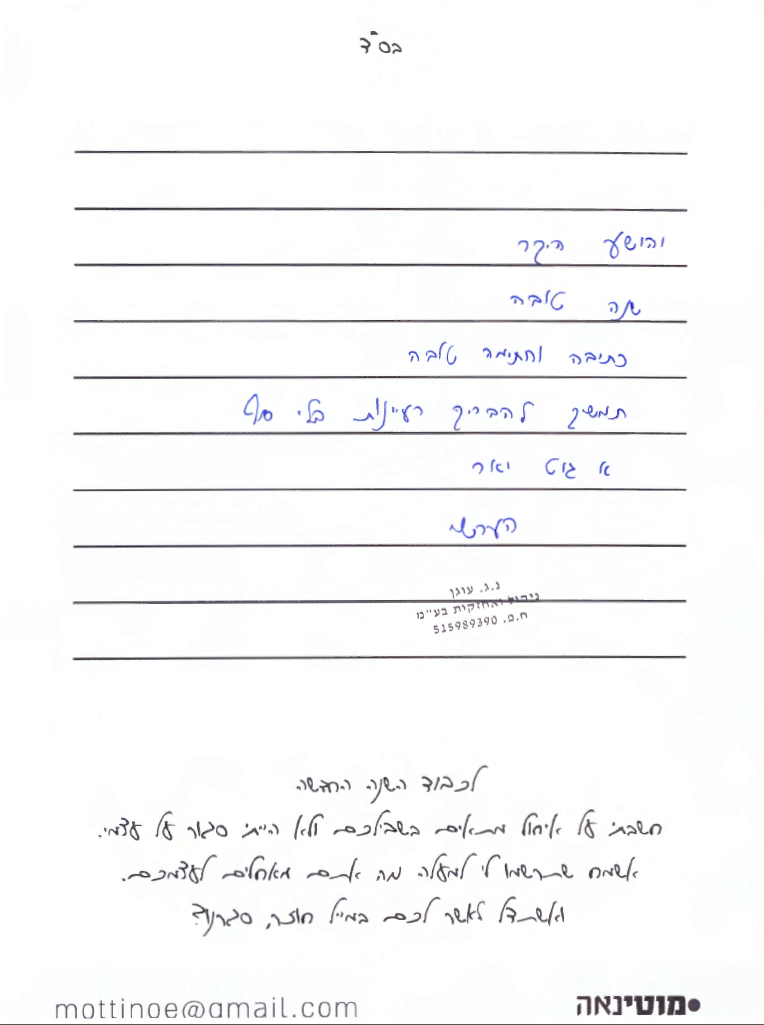 בס"ד
יהושע היקר
שנה טובה
כתיבה וחתימה טובה
תמשיך להבריק רעיונות בלי סוף
א גוט יאר
הערשי
נ.ג. עוגן
ניהול ואחזקות בע"מ
ח.פ. 515989390
לכבוד השנה החדשה
חשבתי על איחול מתאים בשבילכם ולא הייתי סגור על עצמי.
אשמח שתרשמו לי למעלה מה אתם מאחלים לעצמכם.
ואשתדל לאשר לכם במייל חוזר, סגרנו?
מוטינאה
mottinoe@gmail.com